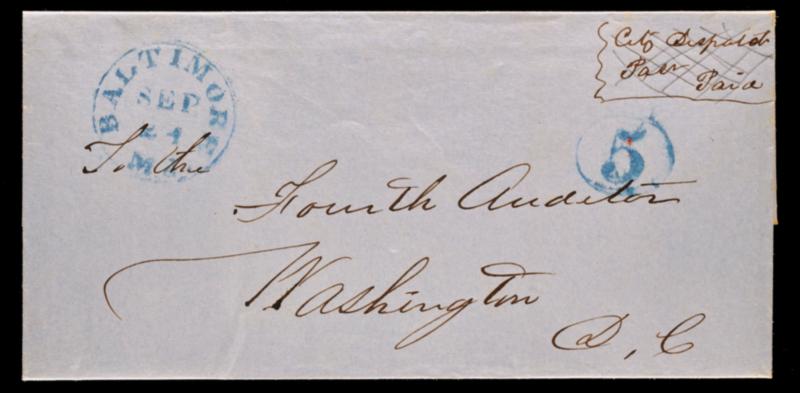 BALTIMORE
SEP
24
Md.
City Despatch
Post
Paid
5
To the
Fourth Auditor
Washington
D, C